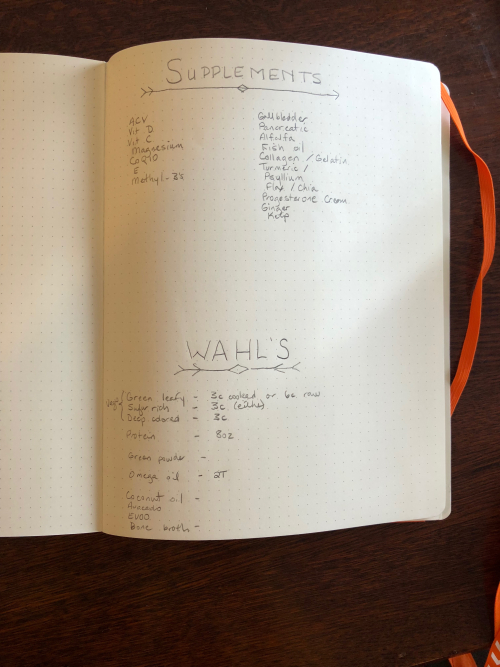 SUPPLEMENTS
ACV
Vit D
Vit C
Magnesium
CoQ10
E
Methyl-B's
Gallbladder
Pancreatic
Alfalfa
Fish oil
Collagen / Gelatin
Turmeric /
Psyllium
Flax / Chia
Progesterone Cream
Ginger
Kelp
WAHL'S
Green leafy - 3c cooked or 6c raw
Sulfur rich - 3c (either)
Deep colored - 3c
Protein - 8oz
Green powder -
Omega oil - 2T
Coconut oil -
Avocado
EVOO
Bone broth -